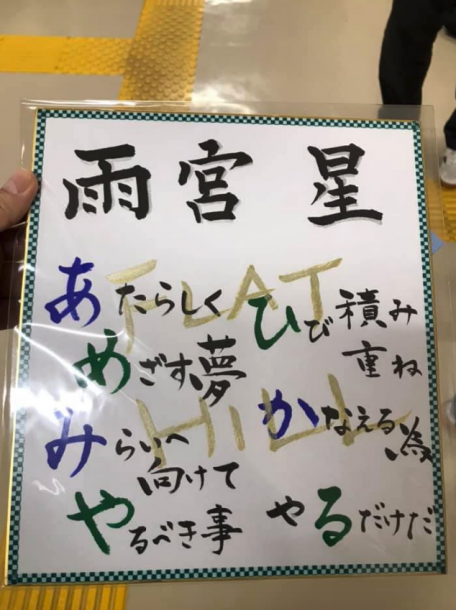 雨宮 星
FLAT
HILL
あたらしく
めざす夢
みらいへ
向けて
やるべき事
ひび積み
重ね
かなえる為
やるだけだ